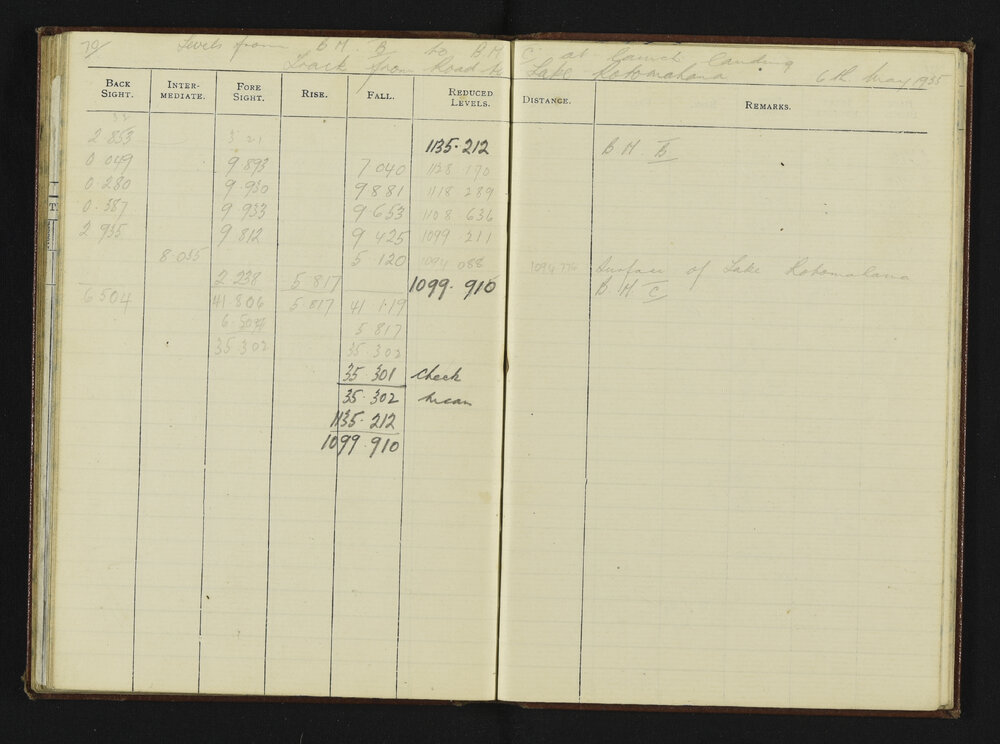 70/ Levels from B M. B to B.M. C at Launch Landing
Track from Road to Lake Rotomahana 6th May 1935
BACK SIGHT. INTER-MEDIATE. FORE SIGHT. RISE. FALL. REDUCED LEVELS. DISTANCE. REMARKS.
2 853 1135.212 B M B
0 049 9 893 7 040 1128 170
0.280 9 930 9 881 1118 289
0.387 9 933 9 653 1108 636
2 935 9 812 9 425 1099 211
8 055 5 120 1094 088 1094 776 Surface of Lake Rotomahana
2 238 5 817 1099.910 B M C
6 504 41 806 5 817 41 119
6.504 5 817
35 302 35.302
35 301 check
35.302 mean
1135.212
1099.910